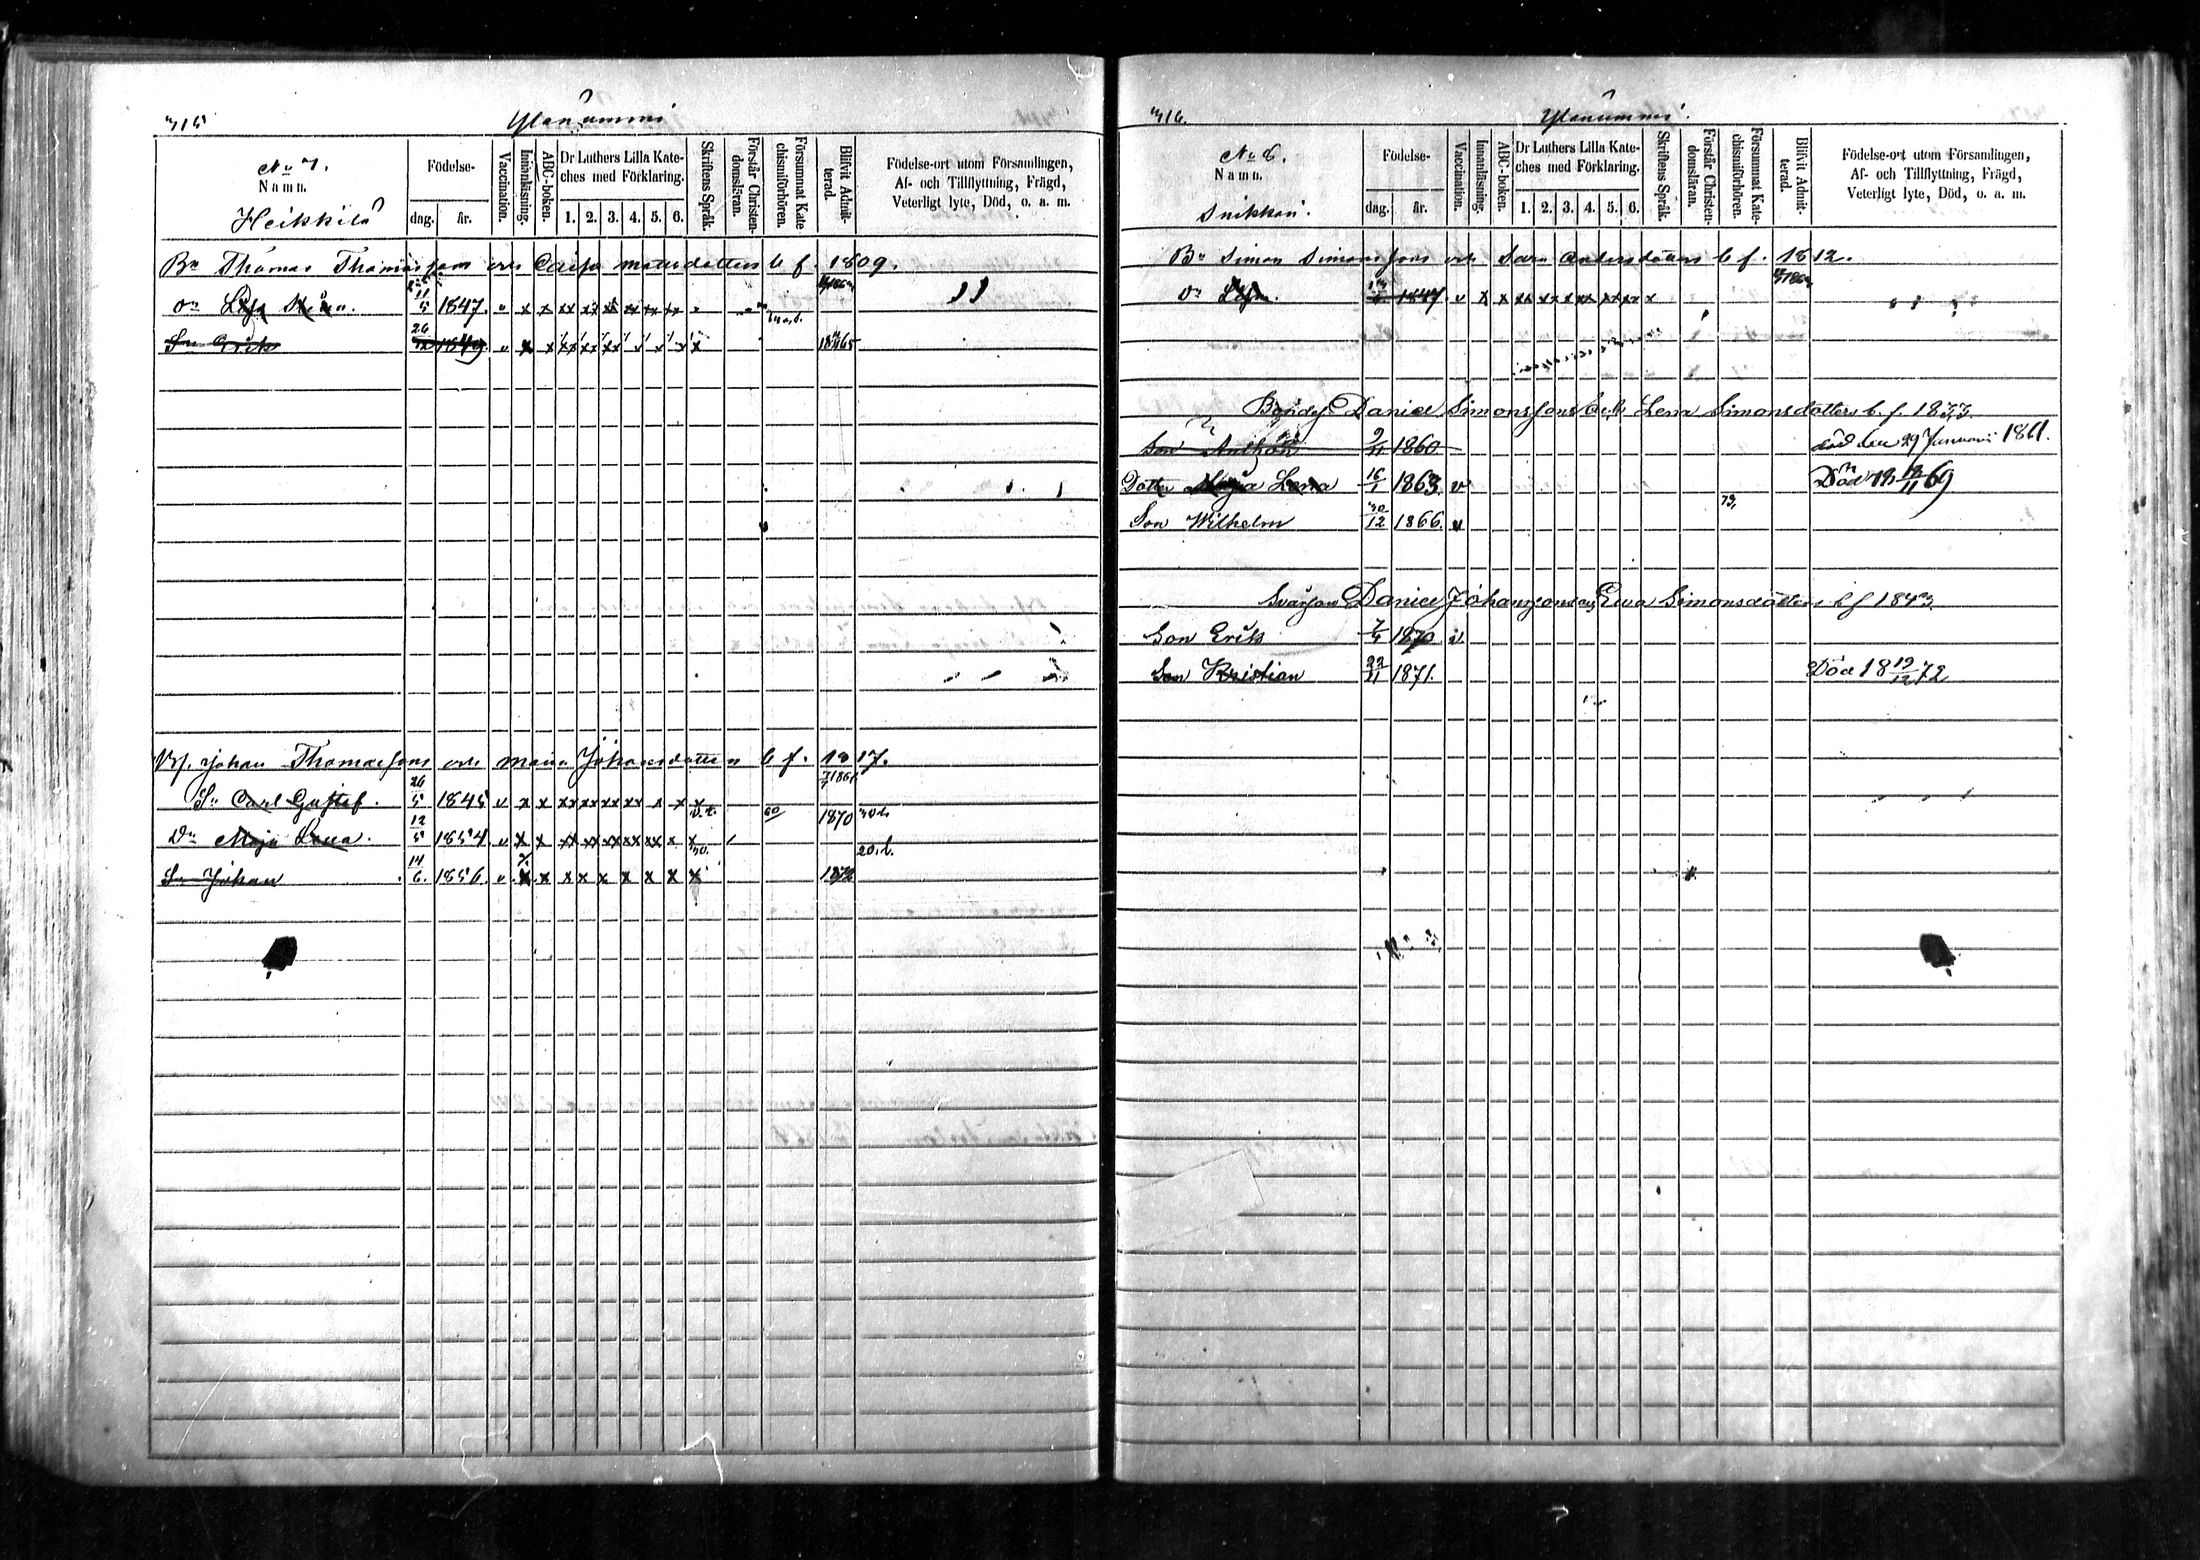 315
Ylanummi
No 7.
Namn.
Heikkilä
Födelse-
dag. år.
Vaccination.
Innanläsning.
ABC-boken.
Dr Luthers Lilla Kate-
ches med Förklaring.
1. 2. 3. 4. 5. 6.
Skriftens Språk.
Förstår Christen-
domsläran.
Försummat Kate
chismiförhören.
Blifvit Admit-
terad.
Födelse-ort utom Församlingen,
Af- och Tillflyttning, Frägd,
Veterligt lyte, Död, o. a. m.
Bn Thomas Thomassons och Caisa Matsdotters b. f. 1809.
Dr Lisa 11/5 1847. v x x xx xx xx xx xx xx
Sn Erik 26/12 1849. v x x
Johan Thomassons och Maria Johansdotters b f. 1817.
Sn Carl Gustaf. 26/5 1845 v x x xx xx xx xx x x x 1870
Dr Maja Lena. 12/5 1854. v x x xx xx xx xx xx x x
Sn Johan 14/6. 1856. v. x x x x x x x x x 1872
316.
Ylanummi.
No 8.
Namn.
Snikkari.
Födelse-
dag. år.
Vaccination.
Innanläsning.
ABC-boken.
Dr Luthers Lilla Kate-
ches med Förklaring.
1. 2. 3. 4. 5. 6.
Skriftens Språk.
Förstår Christen-
domsläran.
Försummat Kate-
chismiförhören.
Blifvit Admit-
terad.
Födelse-ort utom Församlingen,
Af- och Tillflyttning, Frägd,
Veterligt lyte, Död, o. a. m.
Bn Simon Simonssons och Sara Andersdotters b f. 1812.
Dr 1847. v x x xx xx xx xx xx xx x
Bondes Daniel Simonssons och Lena Simonsdotters b. f. 1833.
Son 9/11 1860 död den 29 Januari 1861.
Dotter Maja Lena 16/1 1863. v Död 18 12/11 69
Son Wilhelm 30/12 1866. v 73,
Svärson Daniel Johanssons och Ewa Simonsdotters b f 1843
Son Erik 7/4 1870 v
Son Kristian 22/11 1871. Död 18 12/12 72